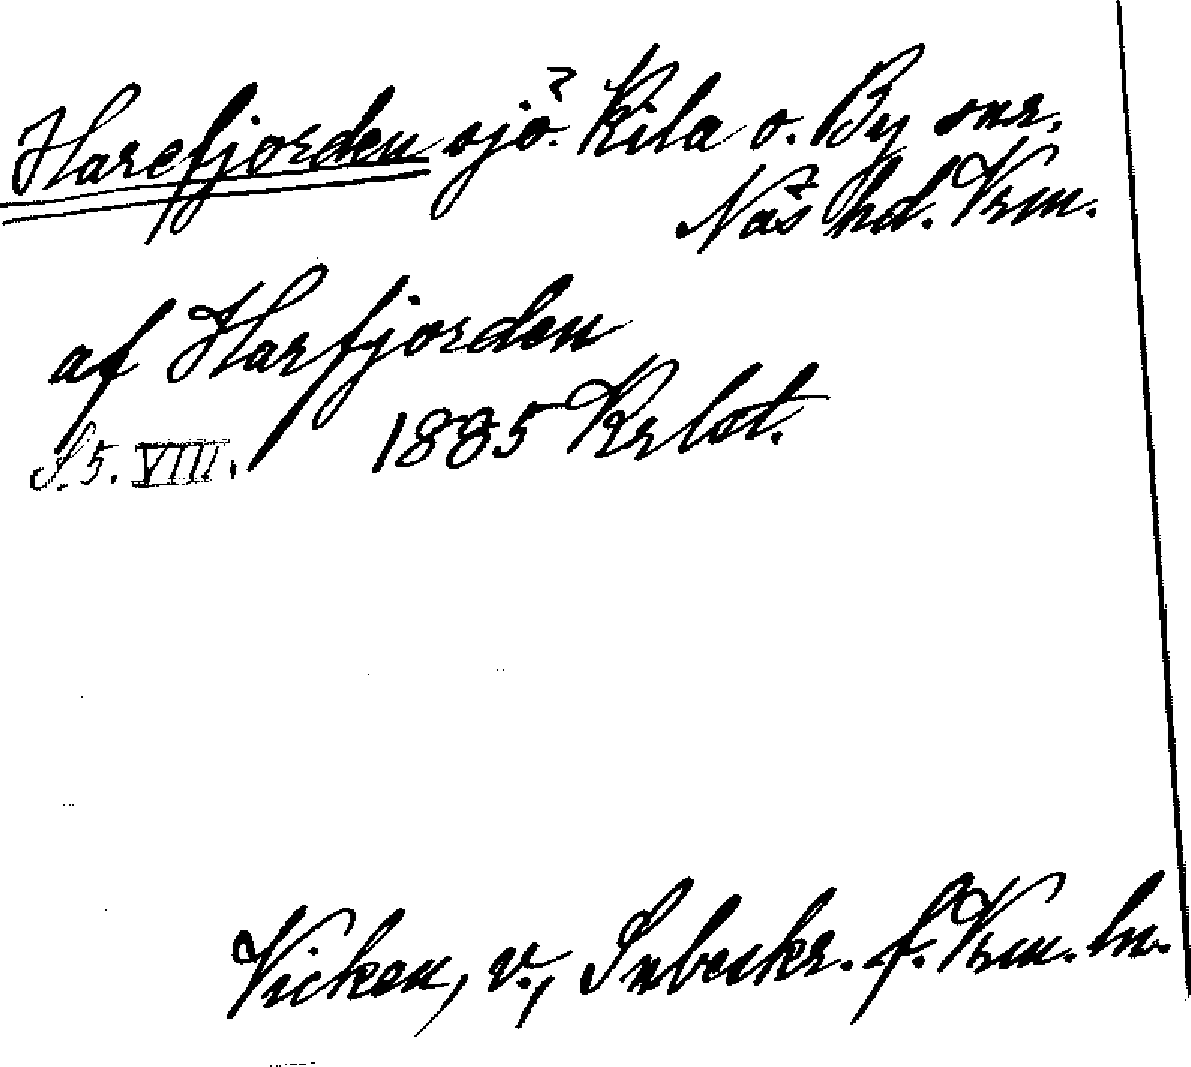 Harefjorden sjö. Kila o. By snr.
Näs hd. Vrm.
af Harfjorden
S. 5. VIII. 1885 Krlst.
Vicken, v., Inbcskr. f. Vrm. ln.